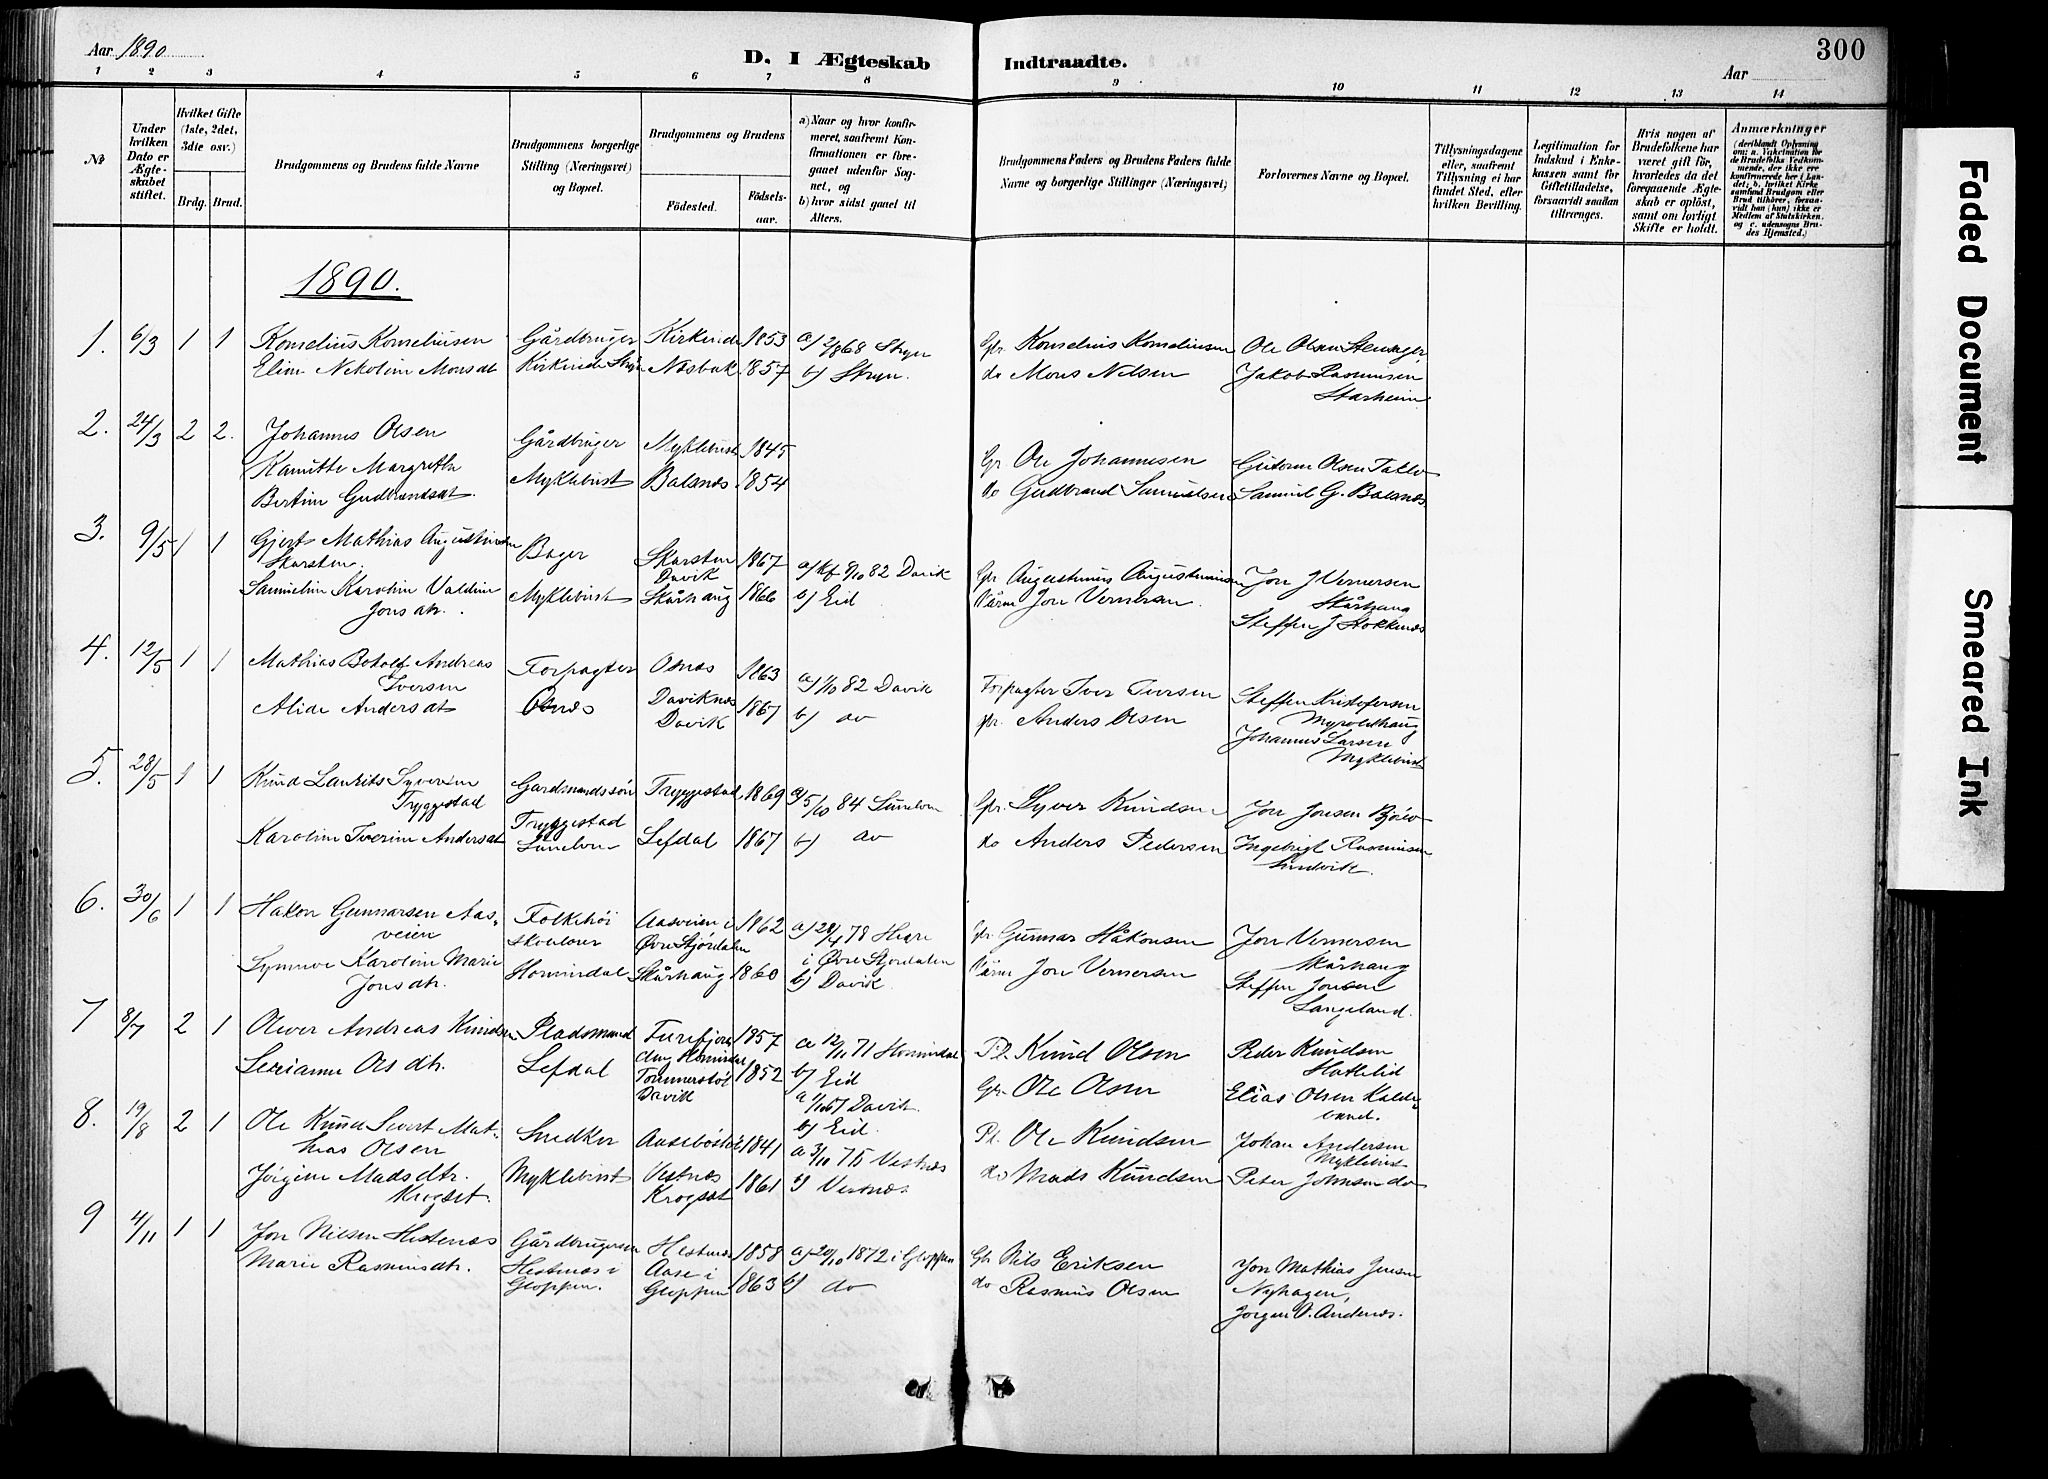 Aar 1890
D. I Ægteskab Indtraadte.
Aar
300
1 2 3 4 5 6 7 8 9 10 11 12 13 14
No
Under hvilken Dato er Ægteskabet stiftet.
Hvilket Gifte (1ste, 2det, 3die osv.)
Brdg. Brud.
Brudgommens og Brudens fulde Navne
Brudgommens borgerlige Stilling (Næringsvei) og Bopæl.
Brudgommens og Brudens
Fødested.
Fødsels-aar.
a) Naar og hvor konfirmeret, saafremt Konfirmationen er foregaaet udenfor Sognet, og
b) hvor sidst gaaet til Alters.
Brudgommens Faders og Brudens Faders fulde Navne og borgerlige Stillinger (Næringsvei)
Forlovernes Navne og Bopæl.
Tillysningsdagene eller, saafremt Tillysning ei har fundet Sted, efter hvilken Bevilling.
Legitimation for Indskud i Enkekassen samt for Giftetilladelse, forsaavidt saadan tiltrænges.
Hvis nogen af Brudefolkene har været gift før, hvorledes da det foregaaende Ægteskab er opløst, samt om lovligt Skifte er holdt.
Anmærkninger (deriblandt Oplysning om: a. Vaccination for de Brudefolks Vedkommende, der ikke ere konfirmerede her i Landet; b. hvilket Kirkesamfund Brudgom eller Brud tilhører, forsaavidt han (hun) ikke er Medlem af Statskirken, og c. udensogns Brudes Hjemsted.)
1890.
1. 6/3 1 1 Kornelius Korneliussen Gårdbruger Kirkeide 1853 a) 2/8 68 Stryn Gbr. Kornelius Korneliussen Ole Olsen Stensager,
Eline Nikoline Monsdt Kirkeide Stryn Næsbak 1857 b) Stryn. do Mons Nelsen Jakob Rasmussen
Starheim
2. 24/3 2 2. Johannes Olsen Gårdbruger Myklebust 1845 Gr Ole Johannesen Guttorm Olsen
Margrethe Myklebust Balsnes 1854 do Gudbrand Samuelsen Samuel G. Balsnes
Bertine Gudbrandsdt.
3. 9/5 1 1 Gjert Mathias Augustinussen Bager Skarsten 1867 a) Kf 8/10 82 Davik Gbr Augustinus Augustinussen Jon J Vernersen
Skarsten. Davik Skårhaug
Samueline Karoline Valdine Myklebust Skårhaug 1866 b) Eid Jon Vernersen. Steffen J Stokkenes
Jonsdtr.
4. 12/5 1 1 Mathias Botolf Andreas Forpagter Osnæs 1863 a) 1/10 82 Davik Forpagter Iver Iversen Steffen Kristofersen
Iversen Myroldhaug
Alide Andersdt Osnæs Daviknæs 1867 b) do gbr. Anders Olsen Johannes Larsen
Davik Myklebust
5. 28/5 1 1 Knud Laurits Syversen Gardmandssøn Tryggestad 1869 a) 5/10 84 Gbr. Syver Knudsen Jon Jonsen Bjørlo
Tryggestad
Karoline Iverine Andersdt Tryggestad Lefdal 1867 b) do do Anders Pedersen Ingebrigt Rasmussen
6. 30/6 1 1 Håkon Gunnarsen Aas- Folkehøi Aasveien i 1862 a) 28/4 78 Hegre gbr Gunnar Håkonsen Jon Vernersen
veien skolelærer Øvre Stjørdalen i Øvre Stjørdalen Skårhaug
Synneve Karoline Marie Hornindal Skårhaug 1860 b) Davik Jon Vernersen Steffen Jonsen
Jonsdtr. Langeland.
7 8/7 2 1 Oliver Andreas Knudsen Pladsmand 1857 a 12/11 71 Hornindal Pl. Knud Olsen Peder Knudsen
Hornindal b) Eid Hattelid
Serianne Olsdtr. Lefdal 1852 a 1/10 67 Davik. Gr. Ole Olsen Elias Olsen
Davik b) Eid.
8. 19/8 2 1 Ole Knud Sivert Mat- Snedker 1841 a 3/11 75 Vestnæs Pl. Ole Knudsen Johan Andersen
hias Olsen Myklebust
Jørgine Madsdtr. Myklebust Vestnæs 1861 b) Vestnæs do Mads Knudsen Peter Johnsen do
Krogset. Krogset
9 4/11 1 1 Jon Nilsen Hestenæs Gårdbrugersøn Hestnæs 1858 a) 20/10 1872 i Gloppen Gbr Nils Eriksen Jon Mathias Jensen
Marie Rasmusdtr. Hestnæs i Aase i 1863 b) do do Rasmus Olsen Nyhagen,
Gloppen. Gloppen Jørgen O. Andenæs.
Faded Document
Smeared Ink